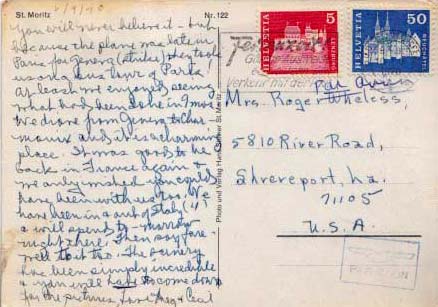 St. Moritz
Nr. 122
you will never believe it - but
because the plane was late in
Paris for Geneva (strike) they took
us on a bus tour of Paris!
At least we enjoyed seeing
what had been done in 9 mos.
We drove from Geneva to Cha-
monix and it is a charming
place. It was good to be
back in France again &
we only wished you could
have been with us too. We
have been in & out of Italy (4)
& will spend to-morrow
night there. Then say fare-
well to it too. The scenery
has been simply incredible
& you will have to come down
for the pictures. Love
Cecil
Photo und Verlag Hans Steiner St. Moritz
HELVETIA
5
HELVETIA
50
Par Avion
Mrs. Roger Wheless,
5810 River Road,
Shreveport, La.
71105
U.S.A.